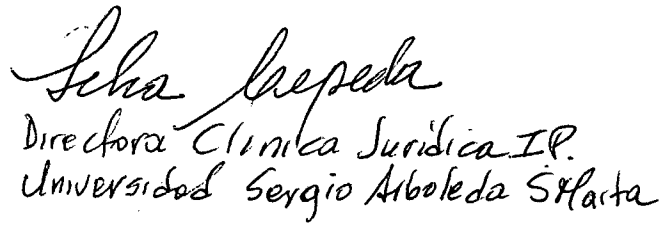 Cepeda
Directora Clínica Jurídica IP.
Universidad Sergio Arboleda S Marta